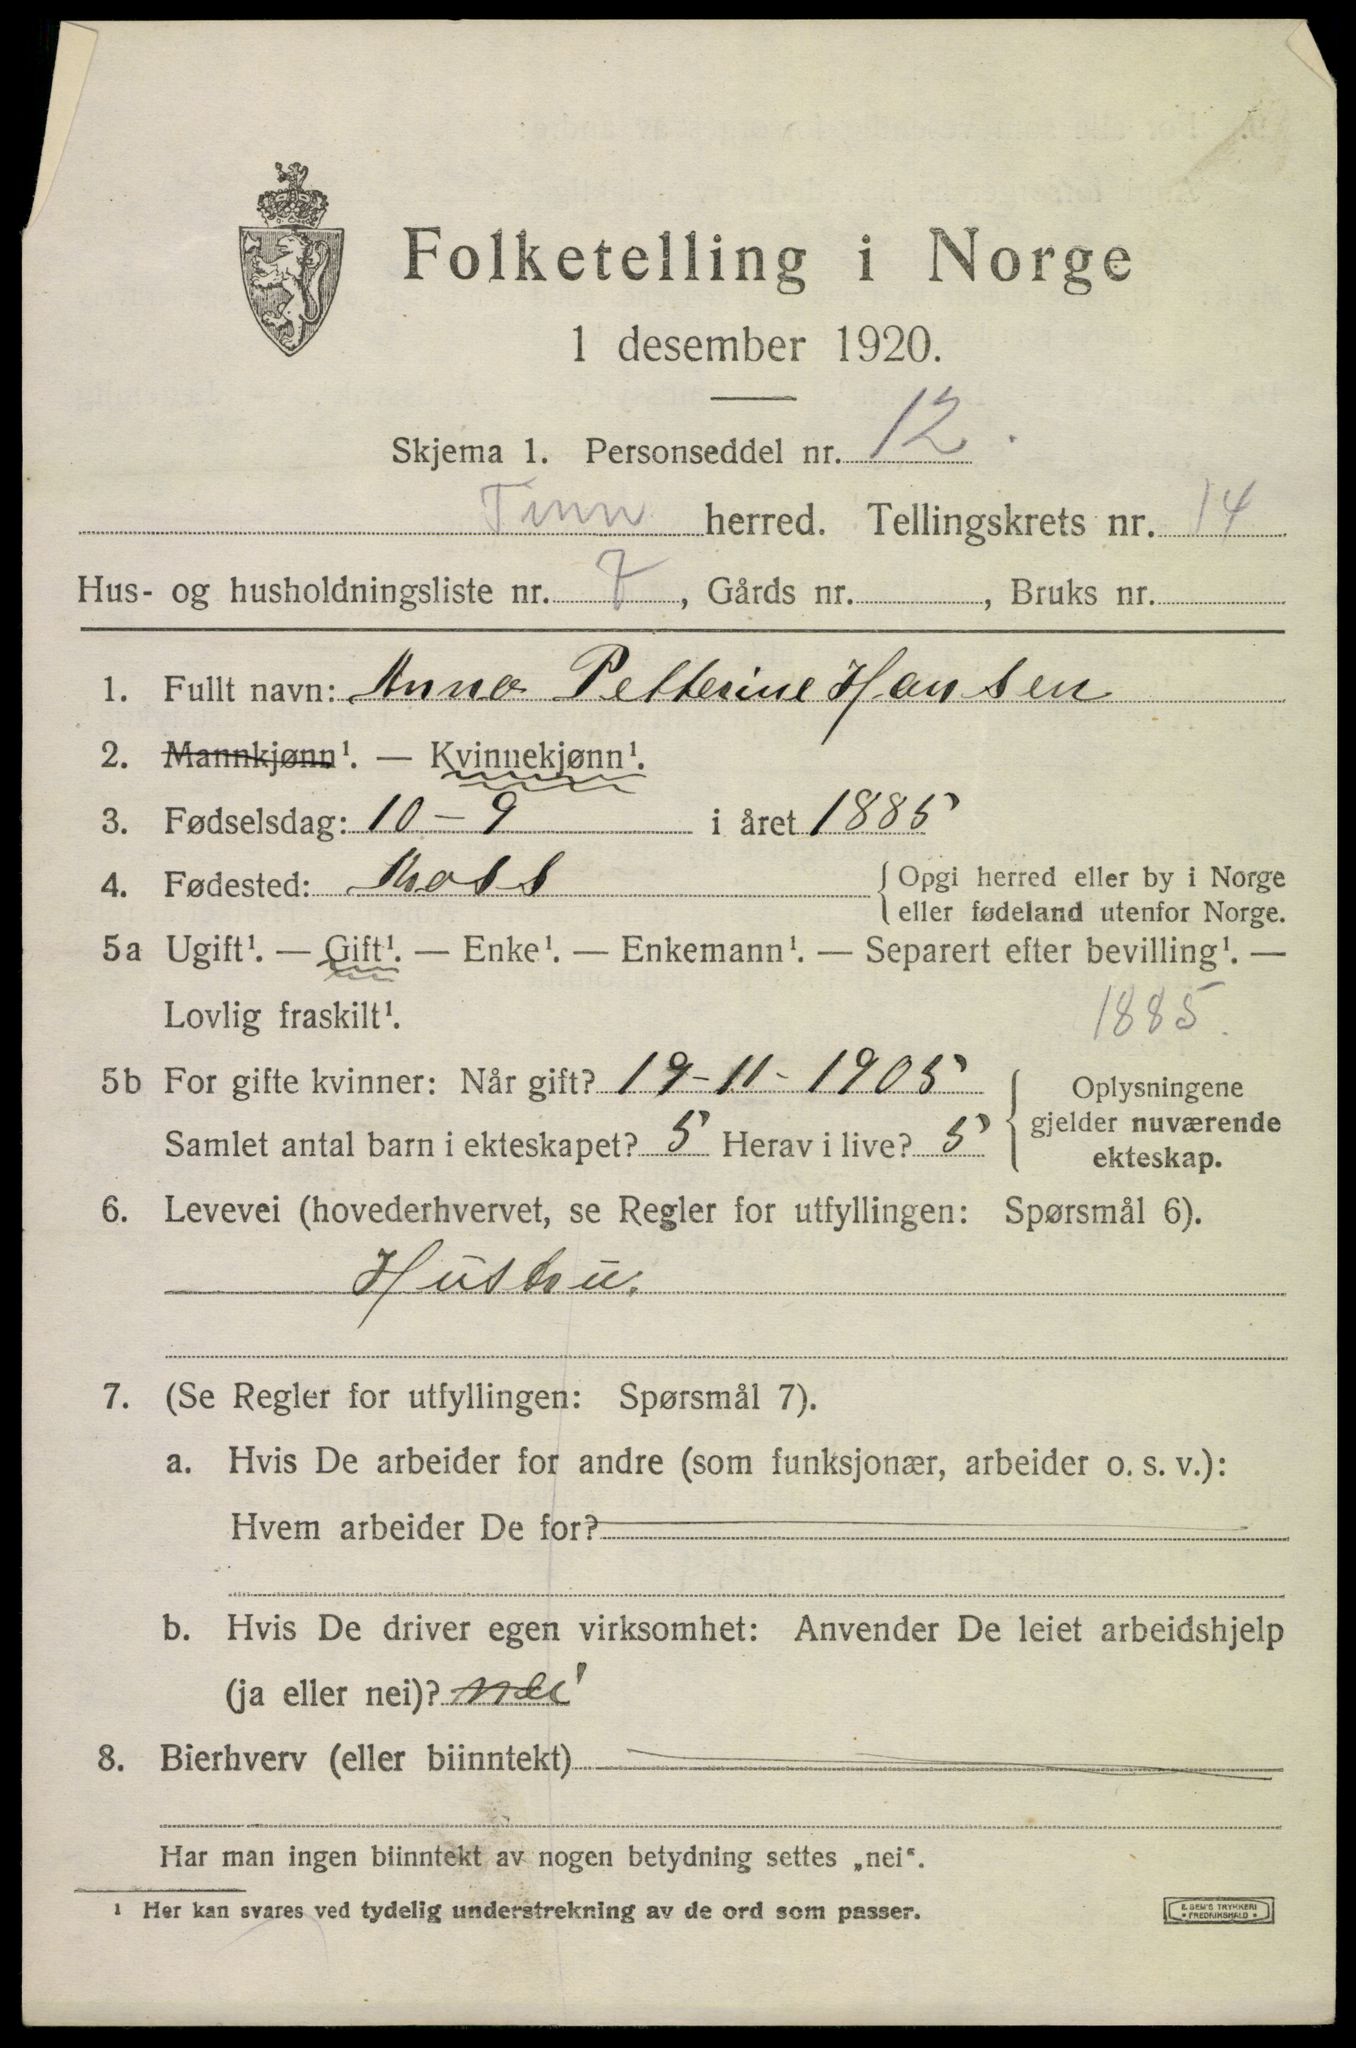 Folketelling i Norge
1 desember 1920.
Skjema 1. Personseddel nr. 12.
Tinn herred. Tellingskrets nr. 14
Hus- og husholdningsliste nr. 7, Gårds nr. , Bruks nr.
1. Fullt navn: Anna Petterine Hansen
2. Mannkjønn¹. — Kvinnekjønn¹.
3. Fødselsdag: 10 - 9 i året 1885
4. Fødested: Moss { Opgi herred eller by i Norge
eller fødeland utenfor Norge.
5a Ugift¹. — Gift¹. — Enke¹. — Enkemann¹. — Separert efter bevilling¹. —
Lovlig fraskilt¹. 1885.
5b For gifte kvinner: Når gift? 19-11-1905 { Oplysningene
gjelder nuværende
Samlet antal barn i ekteskapet? 5 Herav i live? 5
ekteskap.
6. Levevei (hovederhvervet, se Regler for utfyllingen: Spørsmål 6).
Hustru.
7. (Se Regler for utfyllingen: Spørsmål 7).
a. Hvis De arbeider for andre (som funksjonær, arbeider o. s. v.):
Hvem arbeider De for?
b. Hvis De driver egen virksomhet: Anvender De leiet arbeidshjelp
(ja eller nei)? nei
8. Bierhverv (eller biinntekt)
Har man ingen biinntekt av nogen betydning settes „nei“.
¹ Her kan svares ved tydelig understrekning av de ord som passer.
E. SEM'S TRYKKERI
• FREDRIKSHALD •